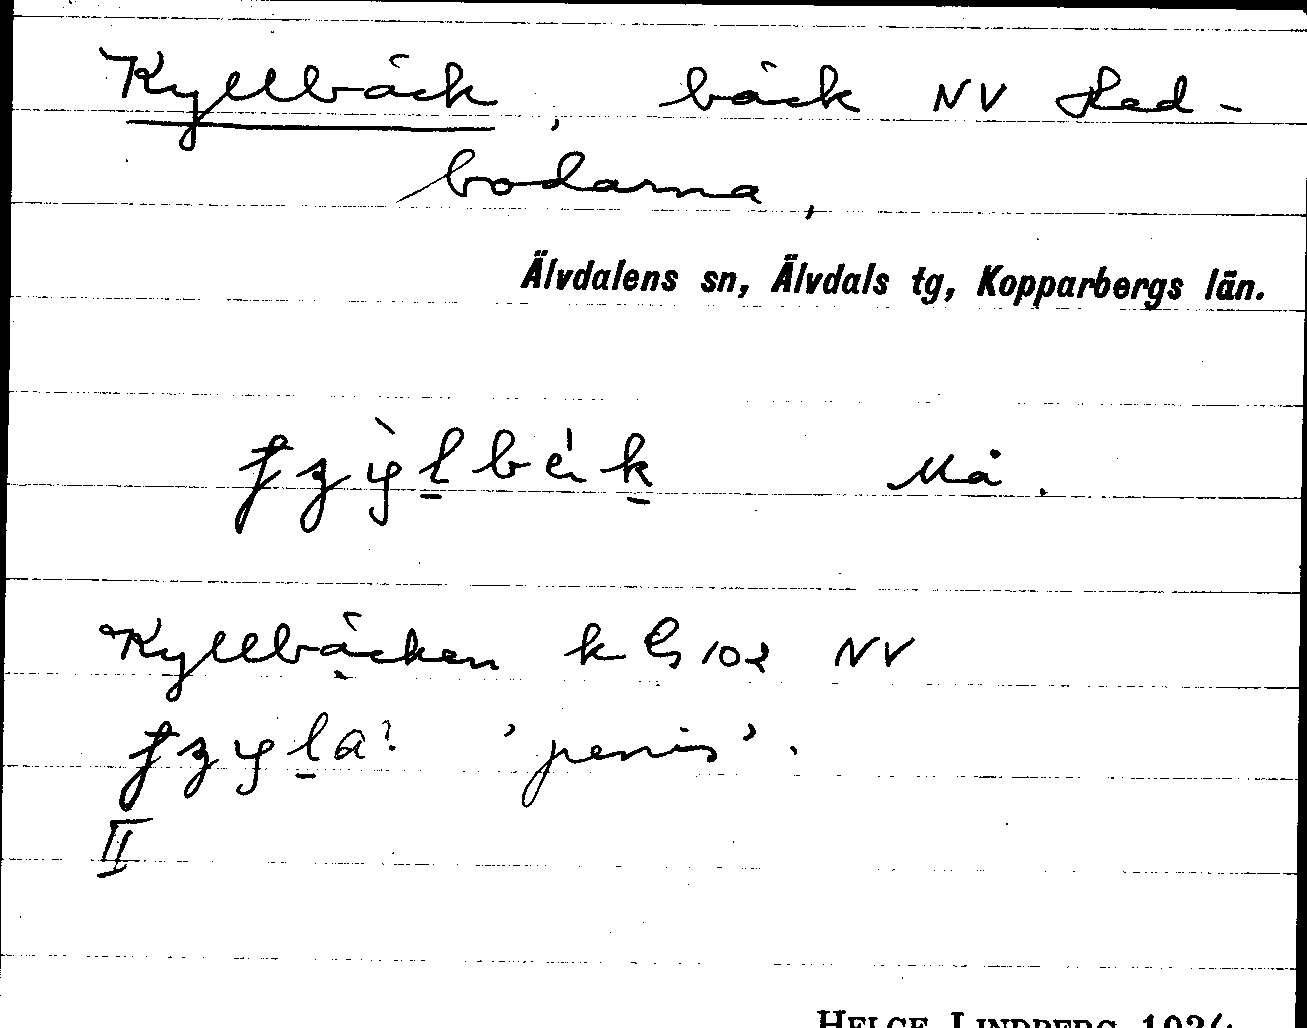 Kyllbäck, bäck NV Hed-
bodarna,
Älvdalens sn, Älvdals tg, Kopparbergs län.
Må.
Kyllbäcken k G 102 NV
'penis'.
II
HELGE LINDBERG